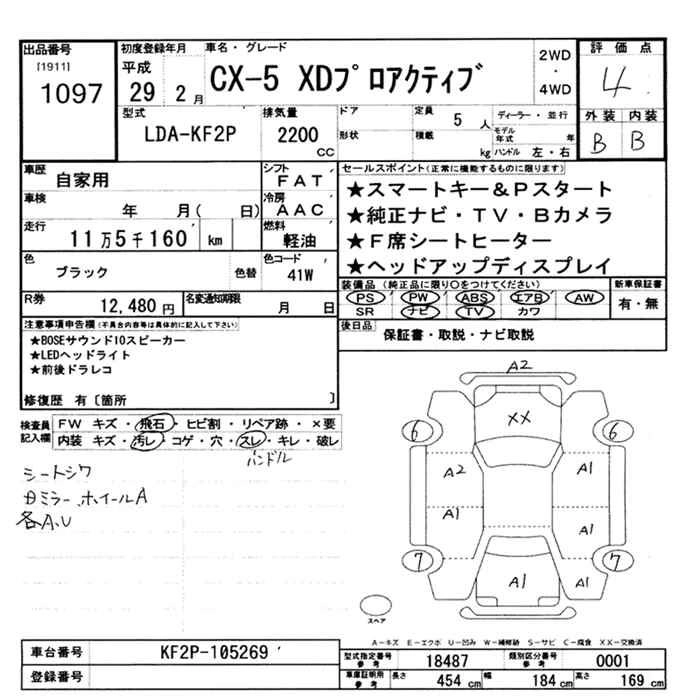 出品番号
[1911]
1097
初度登録年月
平成
29 2月
車名・グレード
CX-5 XDプロアクティブ
2WD
・
4WD
評価点
4
外装 内装
B B
型式
LDA-KF2P
排気量
2200
CC
ドア
形状
定員 5 人
積載 kg
ディーラー・並行
モデル年式 年
ハンドル 左・右
車歴
自家用
シフト
FAT
車検
年 月( 日)
冷房
AAC
走行
11万5千160 km
燃料
軽油
色
ブラック
色替
色コード
41W
R券
12,480 円
名変通知期限
月 日
セールスポイント(正常に機能するものに限ります)
★スマートキー&Pスタート
★純正ナビ・TV・Bカメラ
★F席シートヒーター
★ヘッドアップディスプレイ
装備品(純正品に限り○をつけてください)
PS PW ABS エアB AW
SR ナビ TV カワ
新車保証書
有・無
後日品
保証書・取説・ナビ取説
注意事項申告欄(不具合内容等は具体的に記入して下さい)
★BOSEサウンド10スピーカー
★LEDヘッドライト
★前後ドラレコ
修復歴 有〔箇所 〕
検査員記入欄
FW キズ・飛石・ヒビ割・リペア跡・×要
内装 キズ・汚レ・コゲ・穴・スレ・キレ・破レ
ハンドル
シートシワ
ミラー、ホイールA
各A、U
A2
XX
6
6
A2
A1
A1
A1
7
7
A1
A1
スペア
A-キズ E-エクボ U-凹み W-補修跡 S-サビ C-腐食 XX-交換済
車台番号
KF2P-105269
登録番号
型式指定番号
参考
18487
類別区分番号
参考
0001
車庫証明用
参考
長さ 454 cm 幅 184 cm 高さ 169 cm